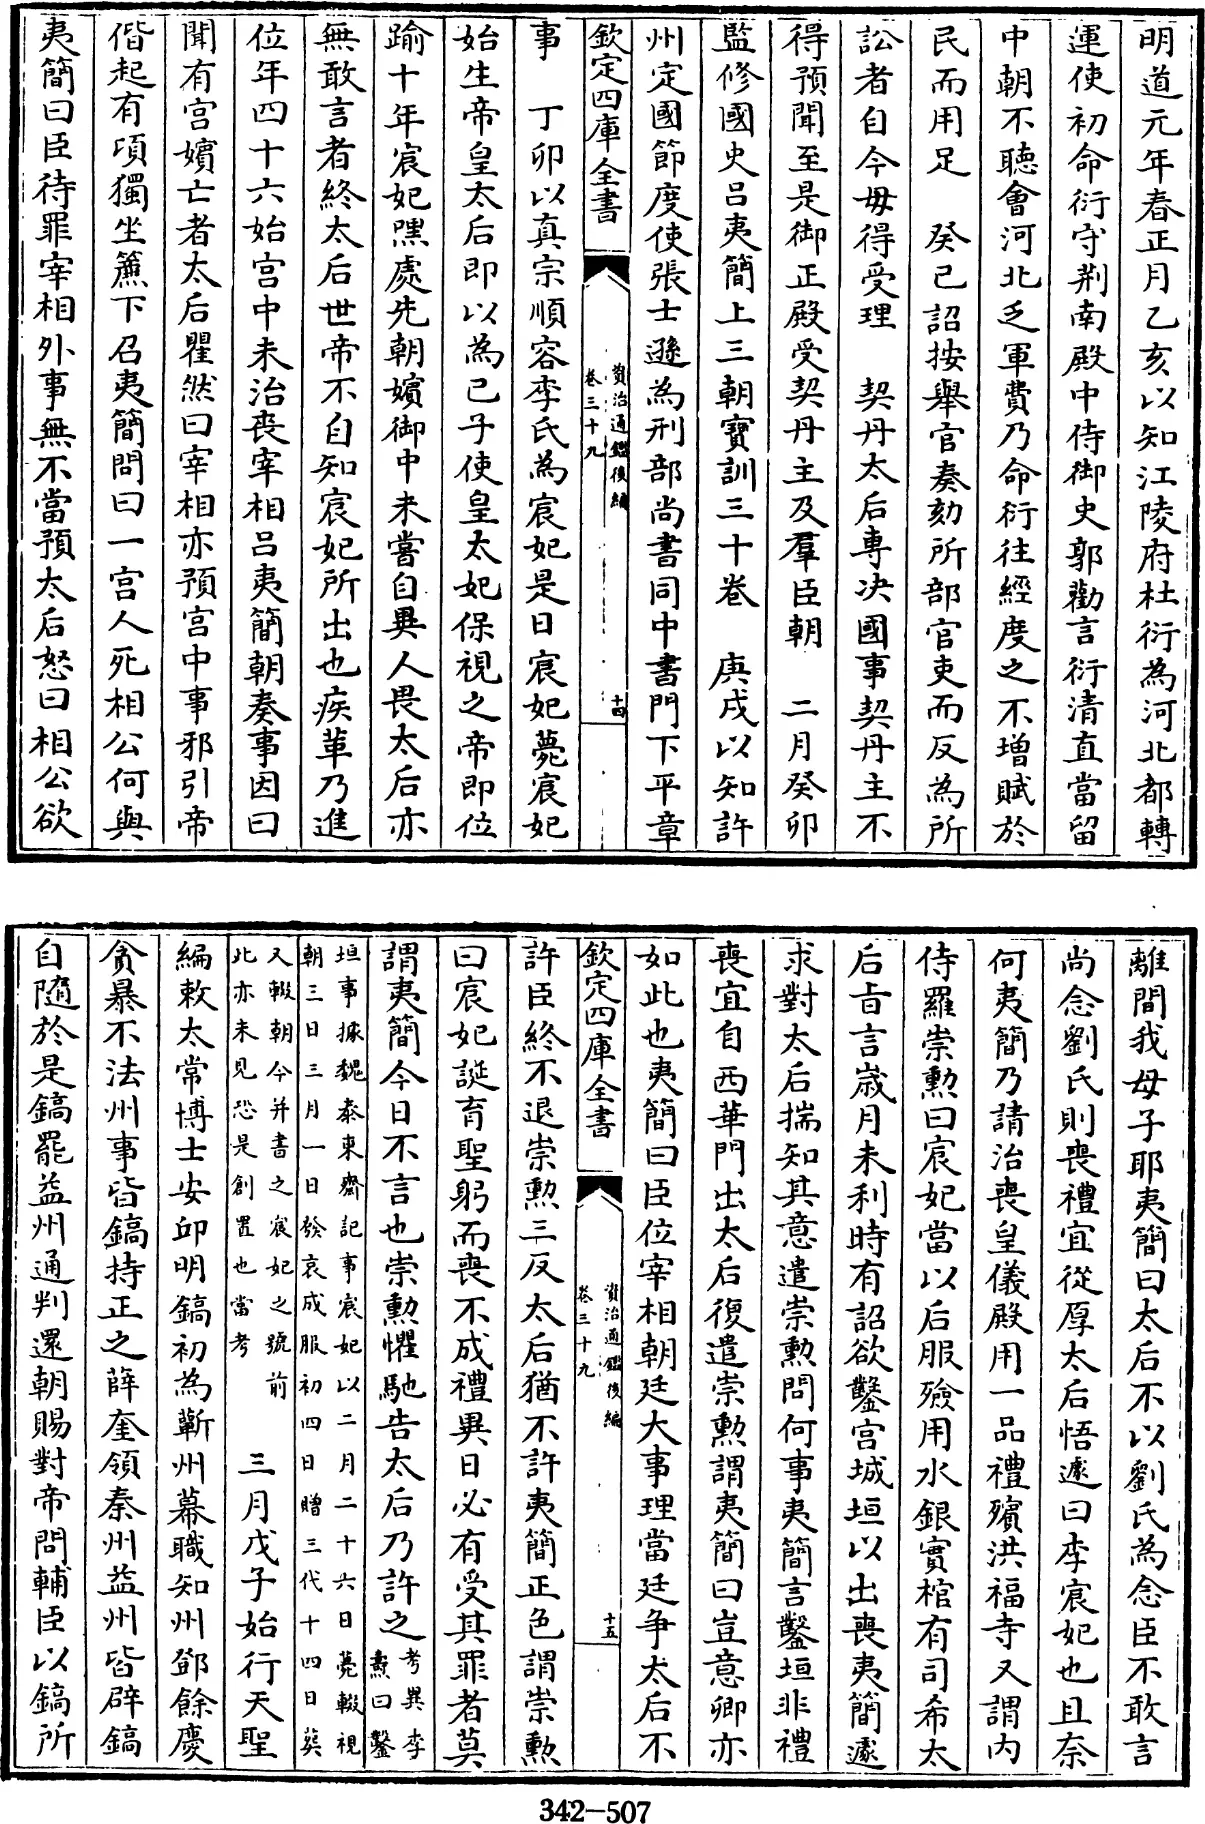 明道元年春正月乙亥以知江陵府杜衍為河北都轉
運使初命衍守荆南殿中侍御史郭勸言衍清直當留
中朝不聽會河北乏軍費乃命衍往經度之不増賦於
民而用足　癸巳詔按舉官奏劾所部官吏而反為所
訟者自今毋得受理　契丹太后専决國事契丹主不
得預聞至是御正殿受契丹主及羣臣朝　二月癸卯
監修國史吕夷簡上三朝寶訓三十巻　庚戌以知許
州定國節度使張士遜為刑部尚書同中書門下平章
欽定四庫全書
資治通鑑後編
卷三十九
十四
事　丁卯以真宗順容李氏為宸妃是日宸妃薨宸妃
始生帝皇太后即以為己子使皇太妃保視之帝即位
踰十年宸妃嘿處先朝嬪御中未嘗自異人畏太后亦
無敢言者終太后世帝不自知宸妃所出也疾革乃進
位年四十六始宫中未治丧宰相吕夷簡朝奏事因曰
聞有宫嬪亡者太后瞿然曰宰相亦預宫中事邪引帝
偕起有頃獨坐簾下召夷簡問曰一宫人死相公何與
夷簡曰臣待罪宰相外事無不當預太后怒曰相公欲
離間我母子耶夷簡曰太后不以劉氏為念臣不敢言
尚念劉氏則喪禮宜從厚太后悟遽曰李宸妃也且奈
何夷簡乃請治喪皇儀殿用一品禮殯洪福寺又謂内
侍羅崇勲曰宸妃當以后服殮用水銀實棺有司希太
后旨言歳月未利時有詔欲鑿宫城垣以出喪夷簡遽
求對太后揣知其意遣崇勲問何事夷簡言鑿垣非禮
喪宜自西華門出太后復遣崇勲謂夷簡曰豈意卿亦
如此也夷簡曰臣位宰相朝廷大事理當廷争太后不
欽定四庫全書
資治通鑑後編
卷三十九
十五
許臣終不退崇勲三反太后猶不許夷簡正色謂崇勲
曰宸妃誕育聖躬而喪不成禮異日必有受其罪者莫
謂夷簡今日不言也崇勲懼馳告太后乃許之考異李
燾曰鑿
垣事據魏泰東齋記事宸妃以二月二十六日薨輟視
朝三日三月一日發哀成服初四日贈三代十四日葬
又輟朝今并書之宸妃之號前
此亦未見恐是創置也當考
三月戊子始行天聖
編敕太常博士安邱明鎬初為蘄州幕職知州鄧餘慶
貪暴不法州事皆鎬持正之薛奎領秦州益州皆辟鎬
自隨於是鎬罷益州通判還朝賜對帝問輔臣以鎬所
342-507